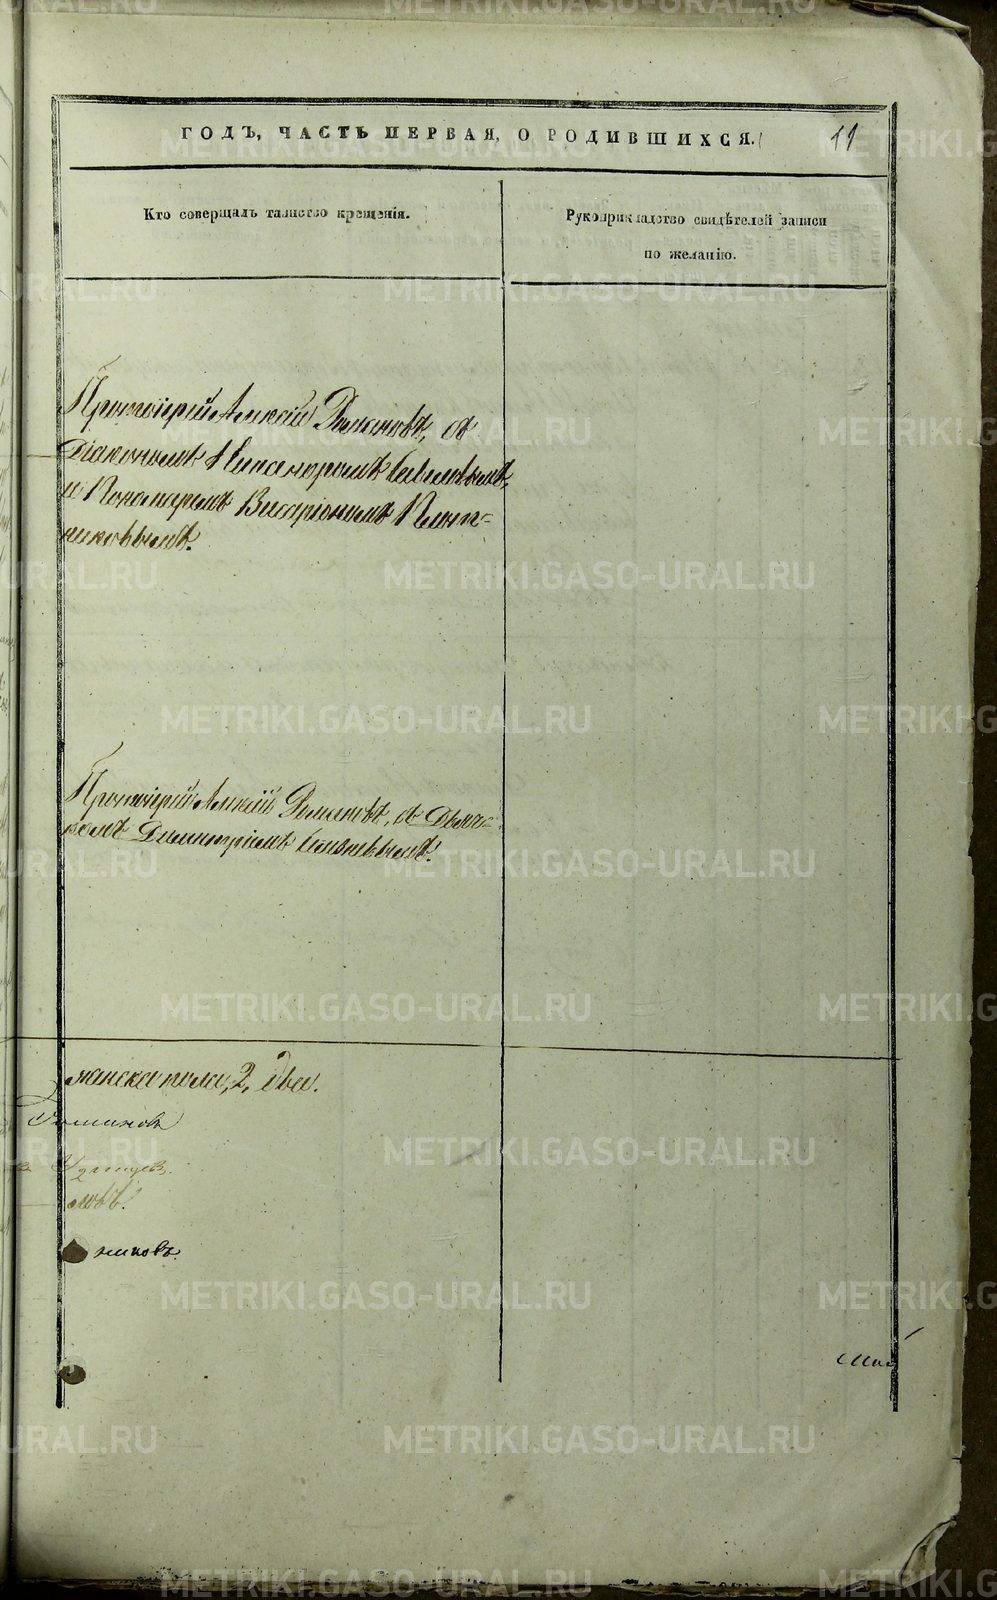 ГОДЪ, ЧАСТЬ ПЕРВАЯ, О РОДИВШИХСЯ.
11
Кто совершалъ таинство крещенія.
Рукоприкладство свидѣтелей записи
по желанію.
Протоіерей Алексій Романовъ, съ
Діакономъ Никаноромъ
и Пономаремъ Висаріономъ Плот=
никовымъ.
Протоіерей Алексій Романовъ, съ Дьяч=
комъ Димитріемъ
женска пола, 2, два.
Романовъ
ловъ.
никовъ.
METRIKI.GASO-URAL.RU